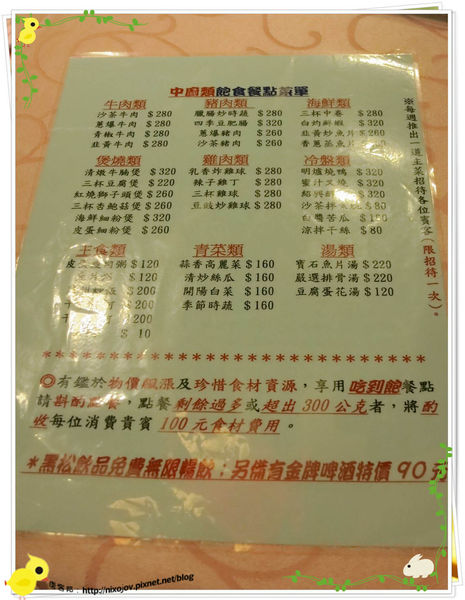 中廚類飽食餐點菜單
牛肉類 豬肉類 海鮮類
沙茶牛肉 $280 臘腸炒時蔬 $280 三杯中卷 $280
蔥爆牛肉 $280 四季豆肥腸 $320 白灼鮮蝦 $320
青椒牛肉 $280 蔥爆豬肉 $260 韭黃炒魚片 $260
韭黃牛肉 $280 沙茶豬肉 $260 香蔥蒸魚片 $260
煲燒類 雞肉類 冷盤類
清燉牛腩煲 $320 乳香炸雞球 $280 明爐燒鴨 $320
三杯豆腐煲 $220 辣子雞丁 $280 蜜汁叉燒
紅燒獅子頭煲 $260 三杯雞球 $280 紹興醉
三杯杏鮑菇煲 $260 豆豉炒雞球 $280 沙茶拌
海鮮細粉煲 $320 白醬苦瓜 $
皮蛋細粉煲 $260 涼拌干絲 $80
主食類 青菜類 湯類
皮 肉粥 $120 蒜香高麗菜 $160 寶石魚片湯 $220
$120 清炒絲瓜 $160 嚴選排骨湯 $220
飯 $200 開陽白菜 $160 豆腐蛋花湯 $120
$200 季節時蔬 $160
$200
$10
※每週推出一道主菜招待各位賓客(限招待一次)。
************************************
◎有鑑於物價飆漲及珍惜食材資源，享用吃到飽餐點
請斟酌點餐，點餐剩餘過多或超出300公克者，將酌
收每位消費貴賓100元食材費用。
*黑松飲品免費無限暢飲；另備有金牌啤酒特價90元
http://nixojov.pixnet.net/blog